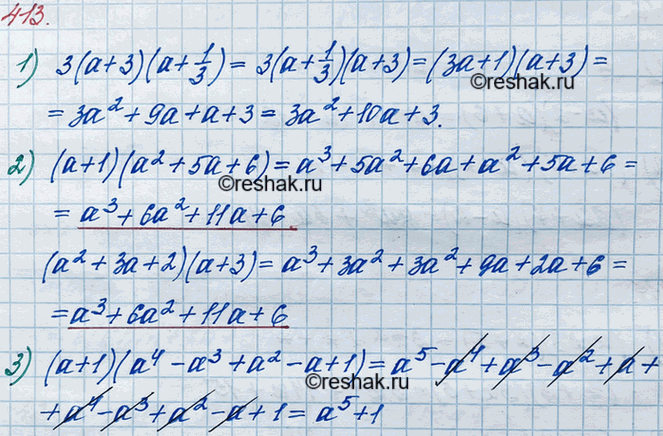 413.
1) 3(a+3)(a+1/3) = 3(a+1/3)(a+3) = (3a+1)(a+3) =
= 3a² + 9a + a + 3 = 3a² + 10a + 3.
©reshak.ru
2) (a+1)(a² + 5a + 6) = a³ + 5a² + 6a + a² + 5a + 6 =
©reshak.ru
= a³ + 6a² + 11a + 6.
(a² + 3a + 2)(a+3) = a³ + 3a² + 3a² + 9a + 2a + 6 =
= a³ + 6a² + 11a + 6
3) (a+1)(a⁴ - a³ + a² - a + 1) = a⁵ - a⁴ + a³ - a² + a +
©reshak.ru
+ a⁴ - a³ + a² - a + 1 = a⁵ + 1